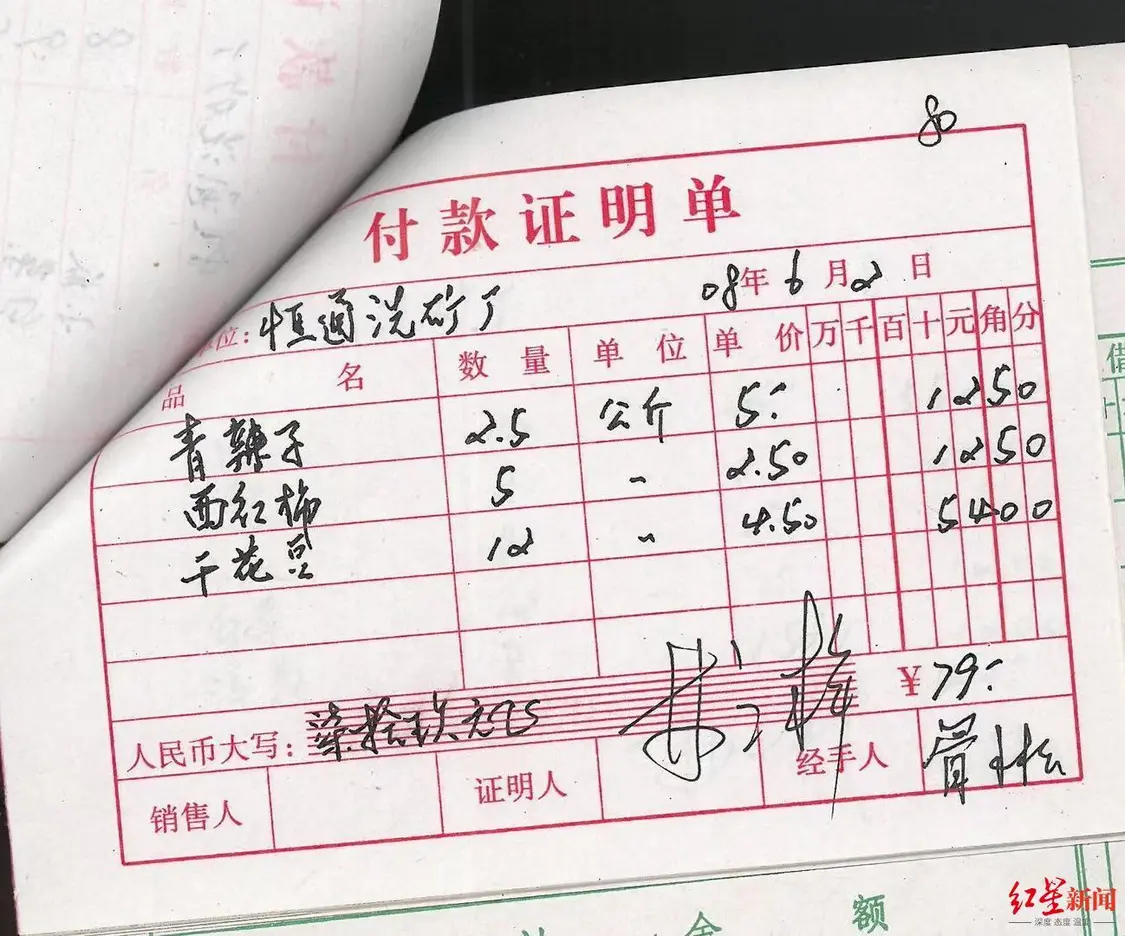 80
付款证明单
位：恒通洗矿厂 08年6月2日
品名 数量 单位 单价 万 千 百 十 元 角 分
青辣子 2.5 公斤 5: 1250
西红柿 5 〃 2.50 1250
干花豆 12 〃 4.50 5400
人民币大写：柒拾玖元正 ¥79:
销售人 证明人 经手人 管林松
金 额
借
红星新闻
深度 态度 温度